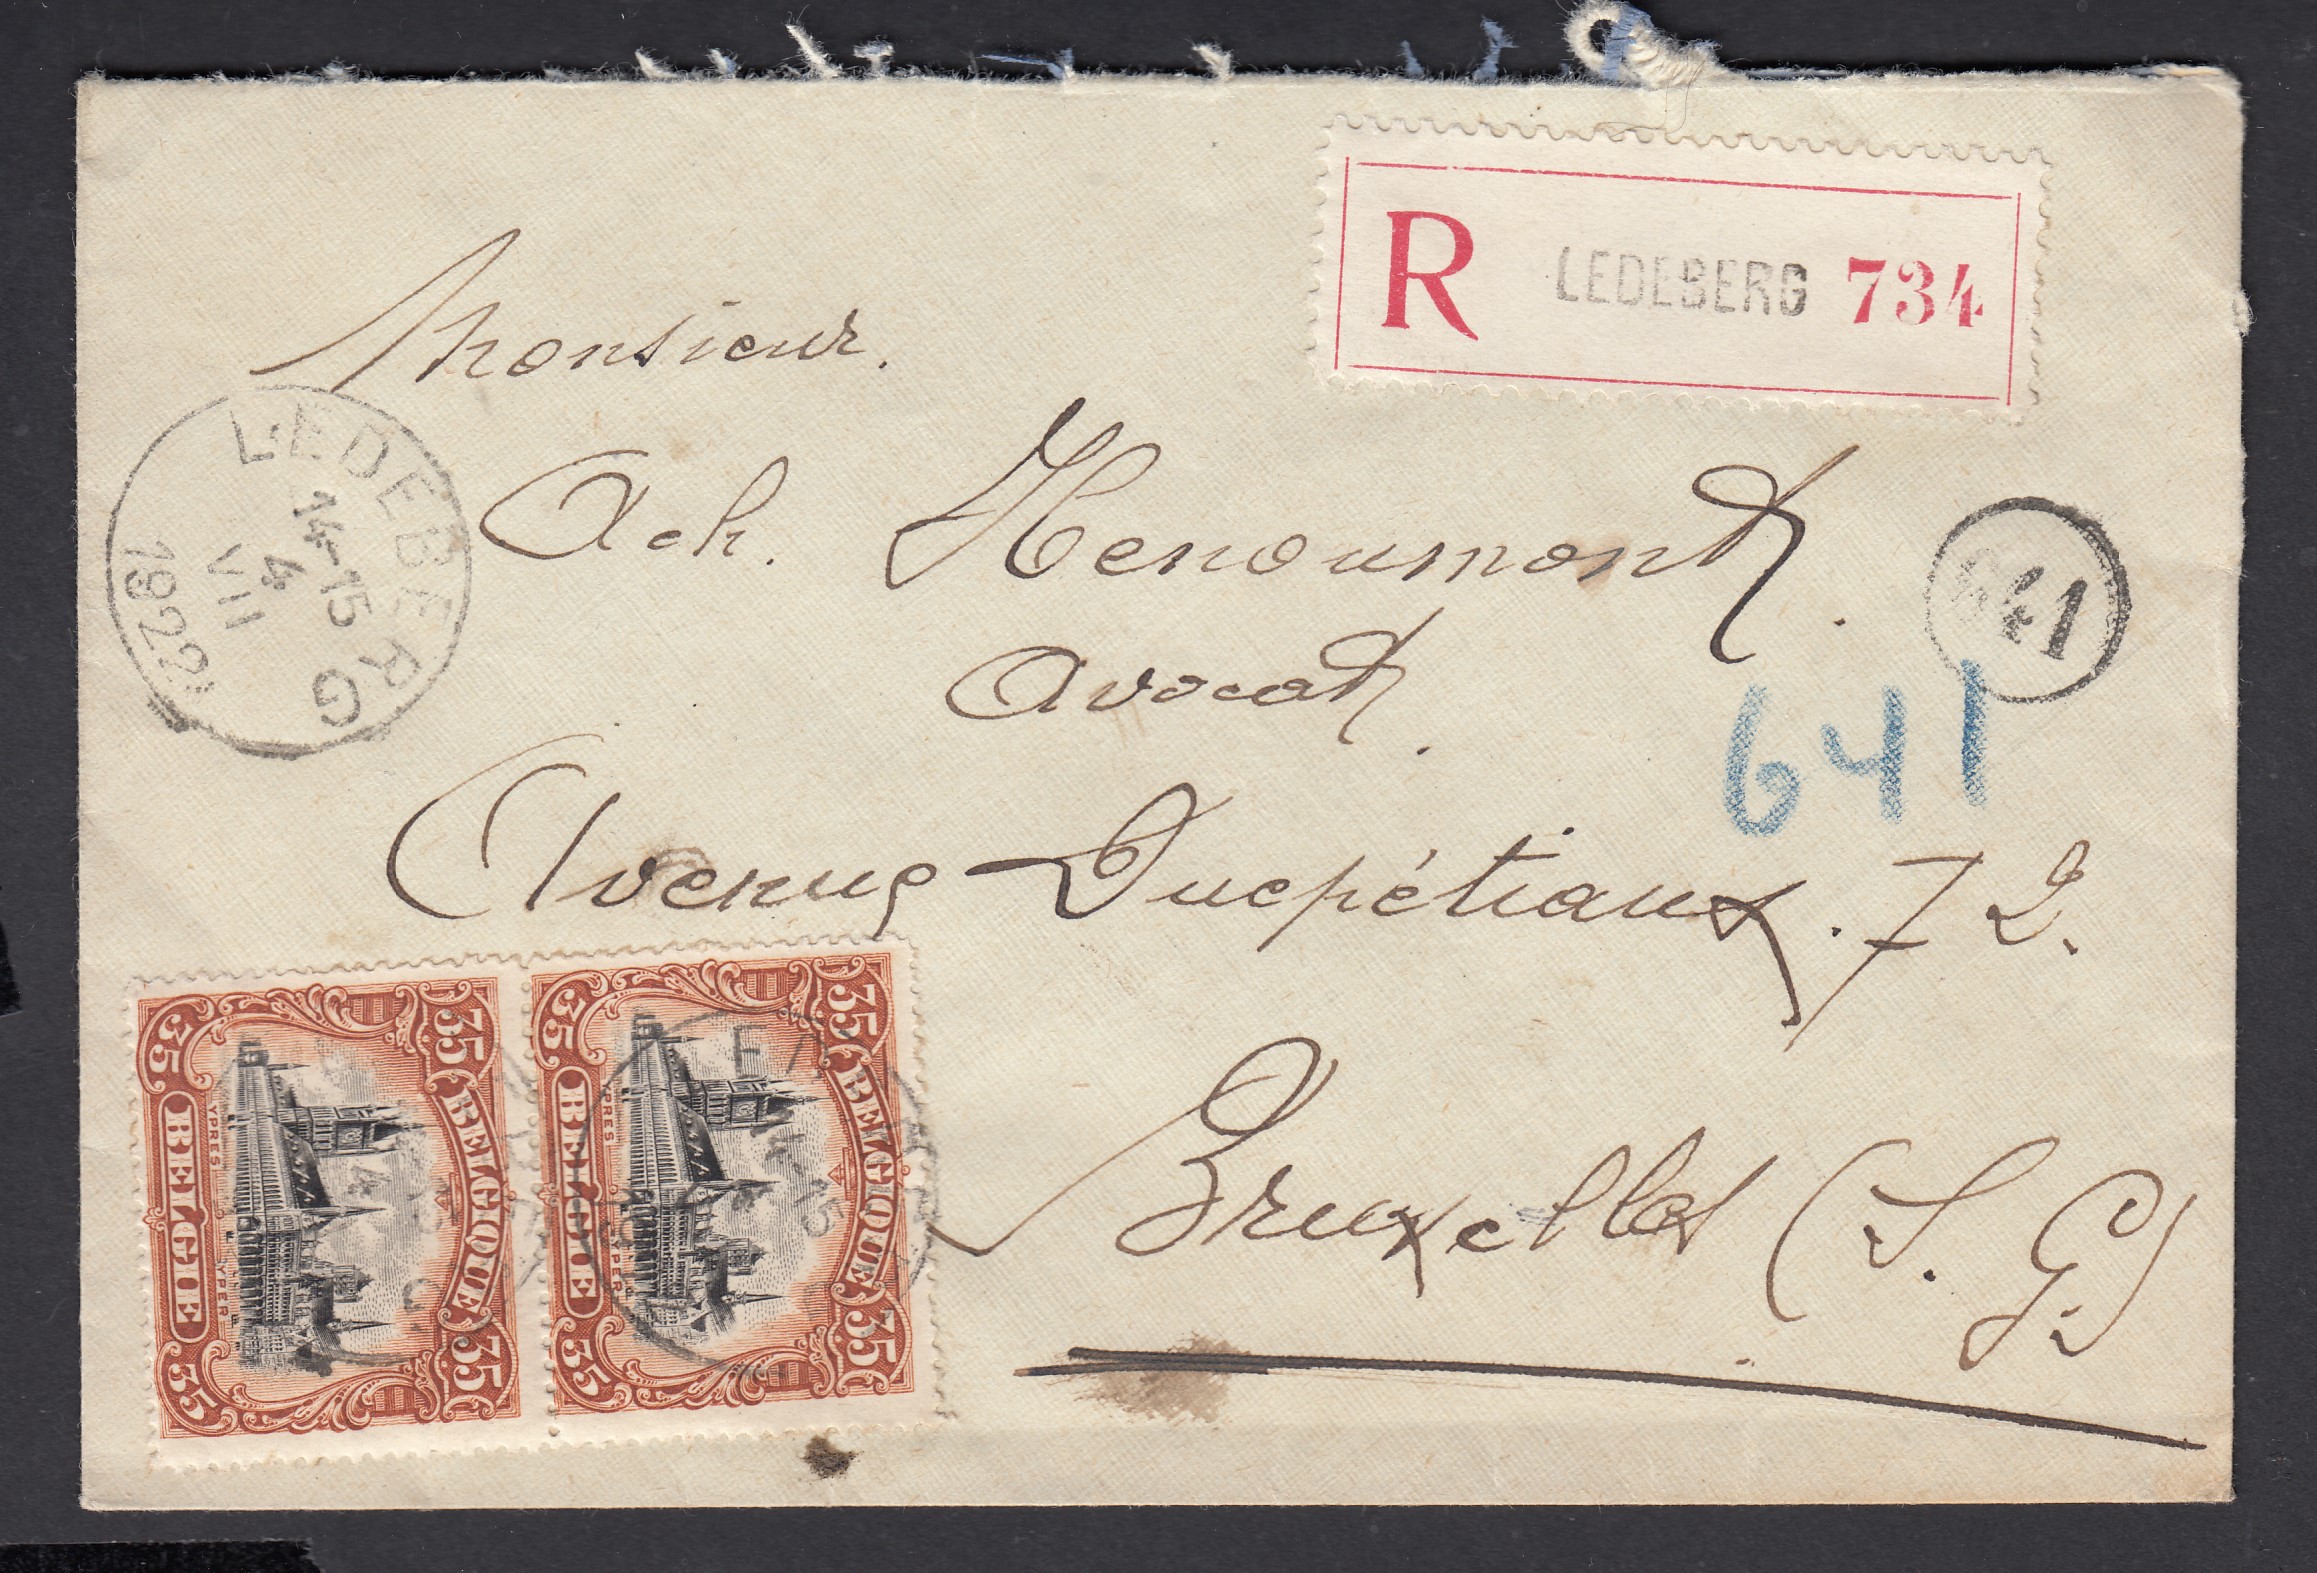 R LEDEBERG 734
Monsieur.
Ach. Henoumont.
Avocat.
Avenue Ducpétiaux. 72.
Bruxelles (S. G.)
LEDEBERG
14-15
4
VII
1922
641
641
35 BELGIQUE 35
YPRES YPER
35 BELGIE 35
35 BELGIQUE 35
YPRES YPER
35 BELGIE 35